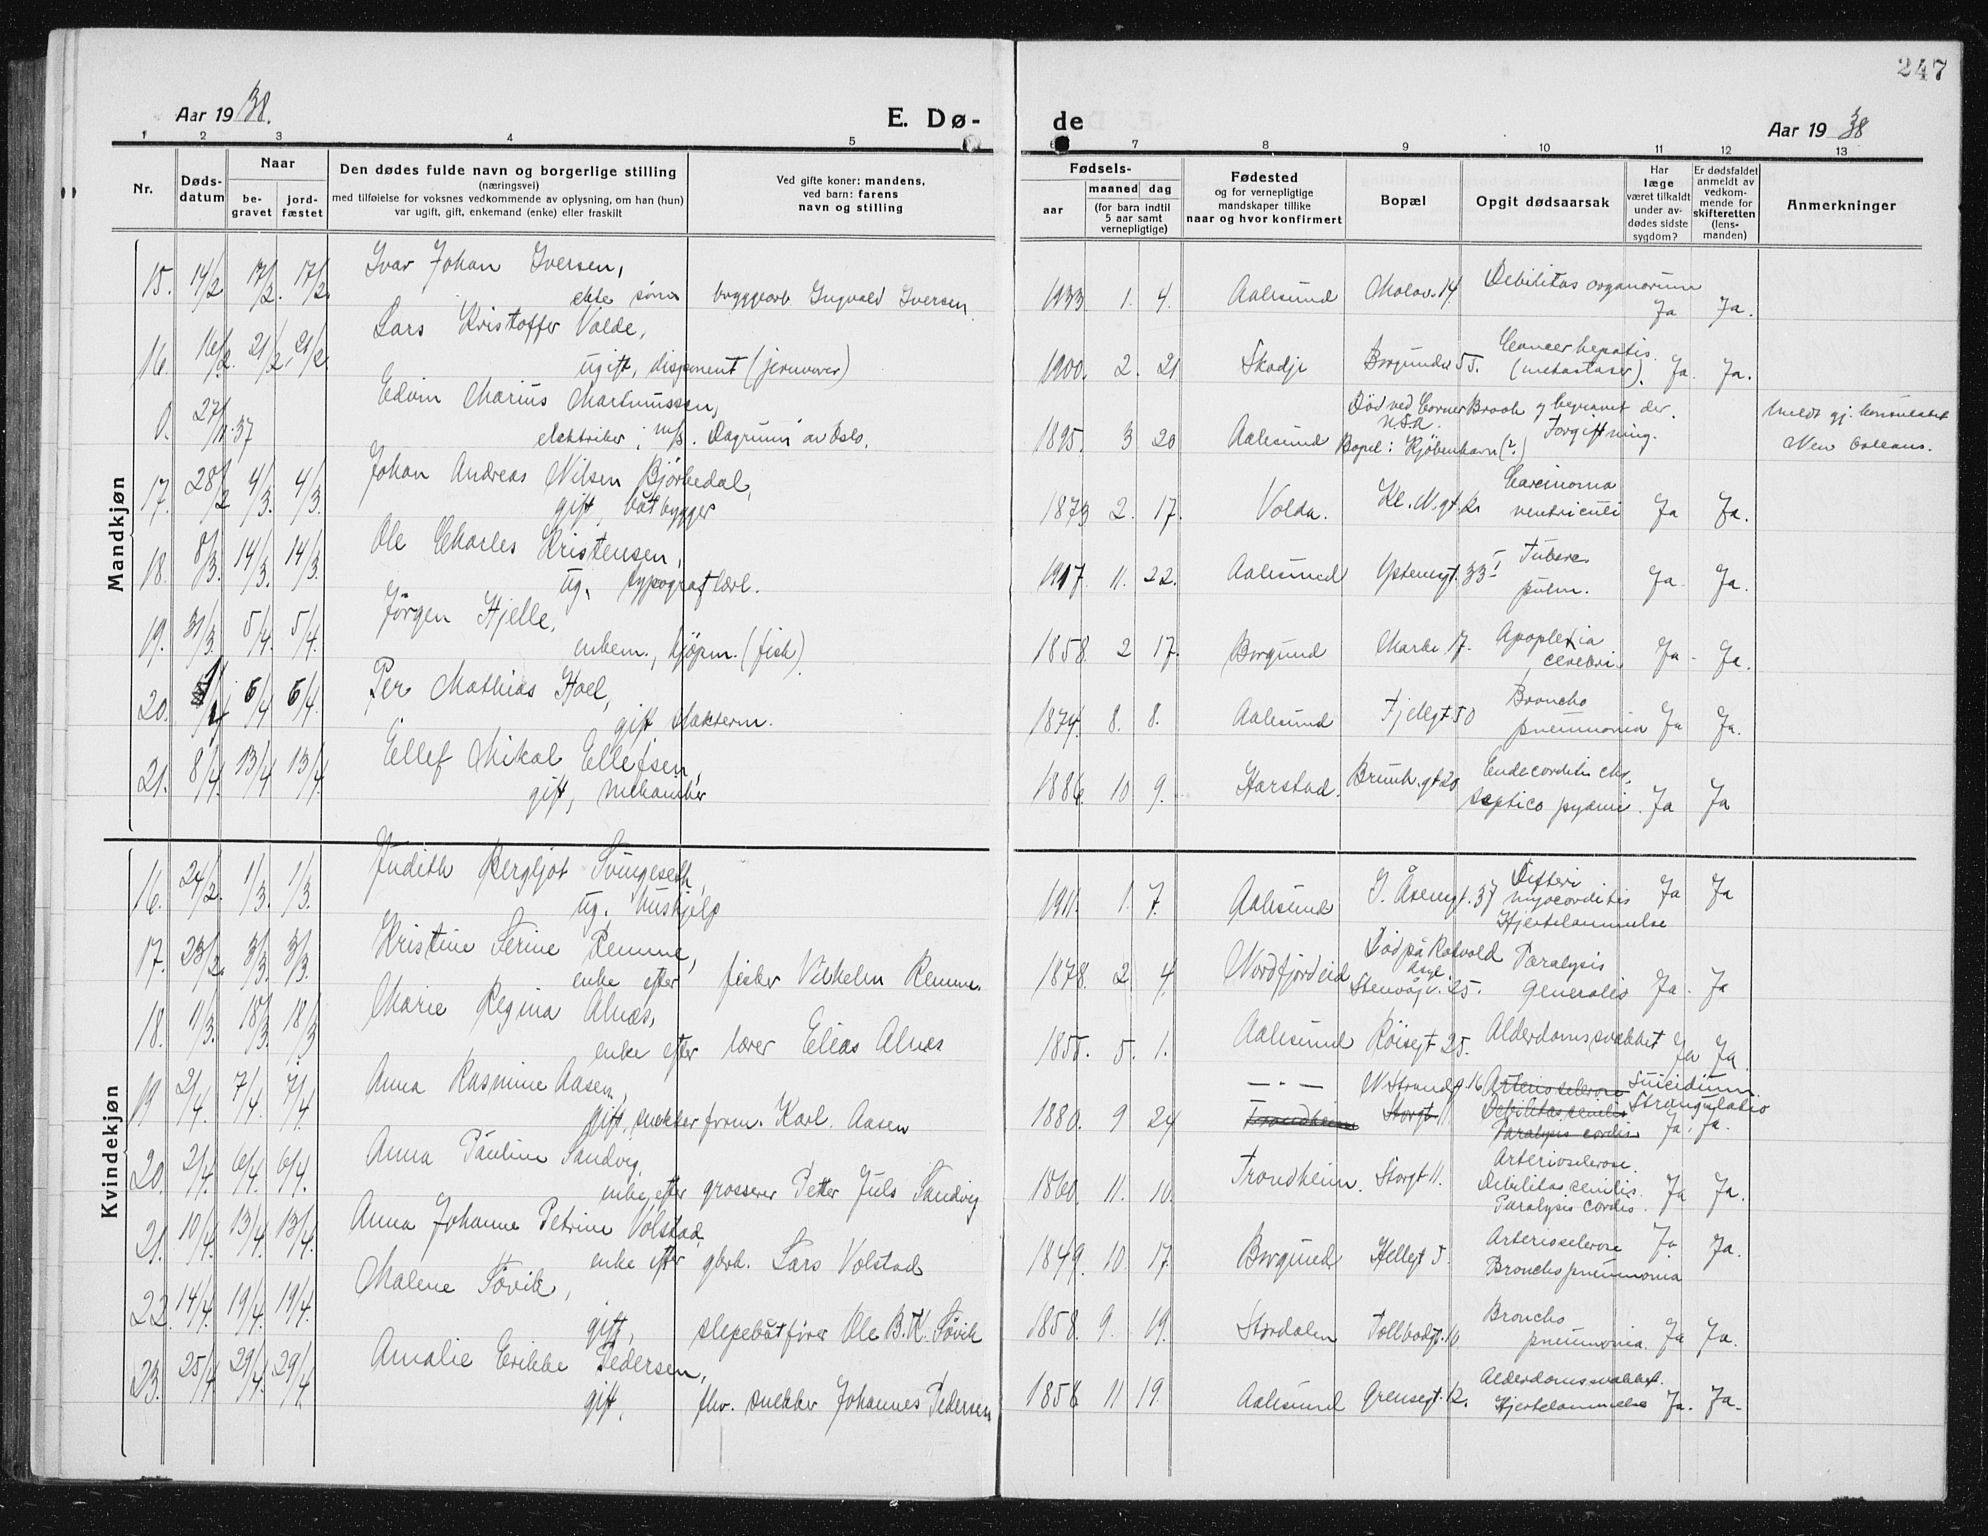 247
Aar 1938.
E. Dø-
de
Aar 1938
1 2 3 4 5 6 7 8 9 10 11 12 13
Nr.
Døds-
datum
Naar
be-
gravet
jord-
fæstet
Den dødes fulde navn og borgerlige stilling
(næringsvei)
med tilføielse for voksnes vedkommende av oplysning, om han (hun)
var ugift, gift, enkemand (enke) eller fraskilt
Ved gifte koner: mandens,
ved barn: farens
navn og stilling
Fødsels-
aar
maaned dag
(for barn indtil
5 aar samt
vernepligtige)
Fødested
og for vernepligtige
mandskaper tillike
naar og hvor konfirmert
Bopæl
Opgit dødsaarsak
Har
læge
været tilkaldt
under av-
dødes sidste
sygdom?
Er dødsfaldet
anmeldt av
vedkom-
mende for
skifteretten
(lens-
manden)
Anmerkninger
Mandkjøn
15. 14/2 17/2. 17/2. Ivar Johan Iversen,
ekte sønn byggearb Ingvald Iversen.
1933 1. 4. Aalesund Molov. 14 Debilitas organorum
Ja Ja.
16. 16/2. 21/2 21/2 Lars Kristoffer Valde,
ugift, disponent (jernvarer)
1900. 2. 21 Skodje Borgundv 55. Cancer hepatis.
(metastaser). Ja. Ja.
0. 27/ 37 Edvin Marius Martinussen,
elektriker, m/s. "Dagrun" av Oslo.
1895. 3 20 Aalesund Død ved Corner Brook og begravet der.
USA. Forgiftning.
Bopel: Kjøbenhavn (?)
Meldt gj. Konsulatet
New Orleans.
17. 28/2 4/3. 4/3. Johan Andreas Nilsen Bjørkedal,
gift, båtbygger
1873 2. 17. Volda. Kl. N. gt. Carcinoma
ventriculi Ja Ja.
18. 8/3. 14/3. 14/3. Ole Charles Kristensen,
ug, typograflærl.
1917. 11. 22. Aalesund Ystenesgt. 33 I Tuberc
pulm. Ja. Ja.
19. 31/3. 5/4. 5/4. Jørgen Hjelle,
enkem., kjøpm. (fisk).
1858. 2 17. Borgund 17. Apoplexia
cerebri. Ja. Ja.
20. 1/4 6/4 6/4. Per Mathias Hoel,
gift, slakterm.
1874. 8. 8. Aalesund Fjellgt 50 Broncho
pneumonia Ja Ja.
21. 8/4. 13/4 13/4. Ellef Mikal Ellefsen,
gift, mekaniker
1886. 10 9. Harstad. Brunh. gt 20 Endocarditis chr.
septico pyæmi. Ja Ja
Kvindekjøn
16. 24/2. 1/3. 1/3. Judith Bergljot Svingeseth,
ug. huskjelp
1911. 1. 7. Aalesund I. Åsengt. 37 Difteri
myocarditis
Hjertelammelse Ja Ja
17. 23/2. 3/3. 3/3. Kristine Serine Remme,
enke efter fisker Vilhelm Remme.
1878. 2 4. Nordfjordeid Død på Rotvold
asyl
Stenvågv. 25. Paralysis
generalis Ja. Ja
18. 11/3. 18/3. 18/3 Marie Regina Alnæs,
enke efter lærer Elias Alnæs
1855. 5. 1. Aalesund Røisegt 25. Alderdomssvakhet Ja Ja
19 2/4. 7/4. 7/4 Anna Rasmine Aasen,
gift, snekkerform. Karl Aasen
1880. 9 24 — " — N. Strandg. 16 Arteriosclerose Suicidium
Trondheim Storgt 11. Debilitas senilis Strangulatio
Paralysis cordis Ja. Ja.
20. 2/4. 6/4. 6/4. Anna Pauline Sandvig,
enke efter grosserer Petter Juls Sandvig
1860. 11. 10. Trondheim. Storgt 11. Arteriosclerose.
Debilitas senilis.
Paralysis cordis. Ja Ja.
21. 10/4. 13/4. 13/4. Anna Johanne Petrine Volstad,
enke efter gbrk. Lars Volstad
1849. 10. 17. Borgund Hellegt 5. Arteriosclerose
Bronchopneumonia Ja. Ja.
22. 14/4. 19/4. 19/4. Malene Søvik,
gift, slepebåtfører Ole B. K. Søvik
1858. 9. 19. Stordalen Tollbodgt. 10. Broncho
pneumonia. Ja Ja.
23. 25/4. 29/4. 29/4. Amalie Erikke Pedersen,
gift, fhv. snekker Johannes Pedersen
1858 11 19. Aalesund Grensegt. 12. Alderdomssvakhet.
Hjertelammelse Ja. Ja.